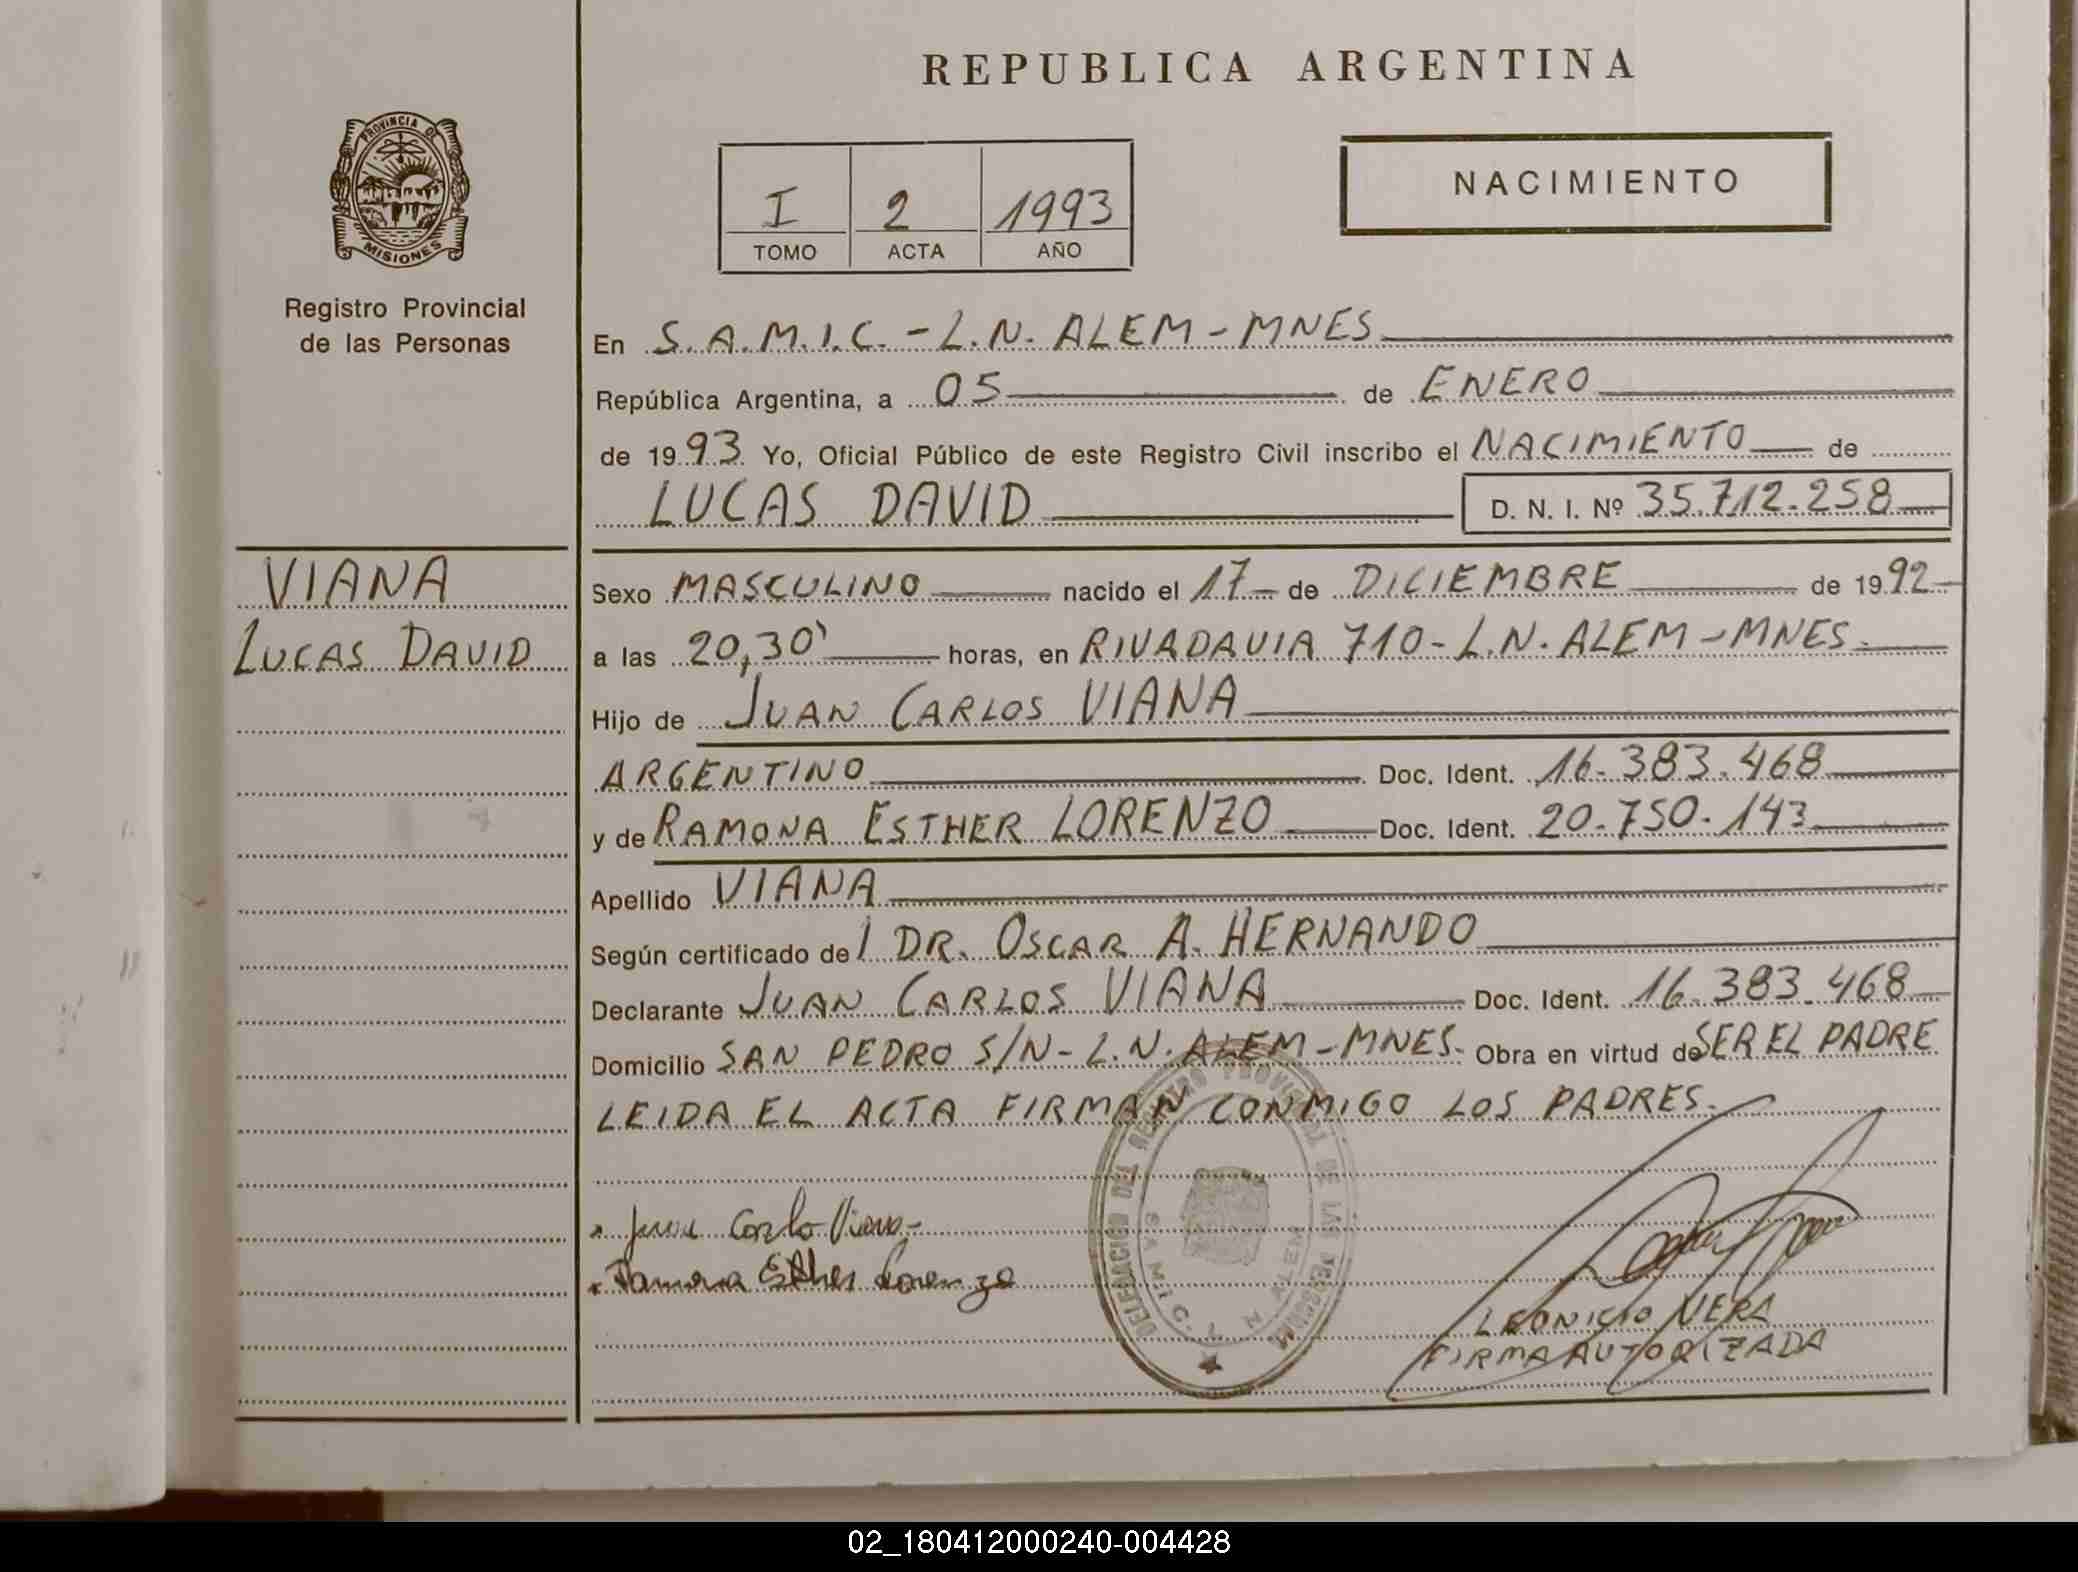 REPUBLICA ARGENTINA
PROVINCIA DE
MISIONES
Registro Provincial
de las Personas
I 2 1993
TOMO ACTA AÑO
NACIMIENTO
En S.A.M.I.C. - L.N. ALEM - MNES
República Argentina, a 05 de ENERO
de 1993 Yo, Oficial Público de este Registro Civil inscribo el NACIMIENTO de
LUCAS DAVID D. N. I. Nº 35.712.258
VIANA
LUCAS DAVID
Sexo MASCULINO nacido el 17 de DICIEMBRE de 1992
a las 20,30' horas, en RIVADAVIA 710 - L.N. ALEM - MNES.
Hijo de JUAN CARLOS VIANA
ARGENTINO Doc. Ident. 16.383.468
y de RAMONA ESTHER LORENZO Doc. Ident. 20.750.143
Apellido VIANA
Según certificado de l DR. OSCAR A. HERNANDO
Declarante JUAN CARLOS VIANA Doc. Ident. 16.383.468
Domicilio SAN PEDRO S/N - L.N. ALEM - MNES. Obra en virtud de SER EL PADRE
LEIDA EL ACTA FIRMAN CONMIGO LOS PADRES.
DELEGACION DEL REGISTRO PROVINCIAL DE LAS PERSONAS
S A M I C. L. N. ALEM
Juan Carlo Viana
Ramona Esther Lorenzo
LEONICIO VERA
FIRMA AUTORIZADA
02_180412000240-004428